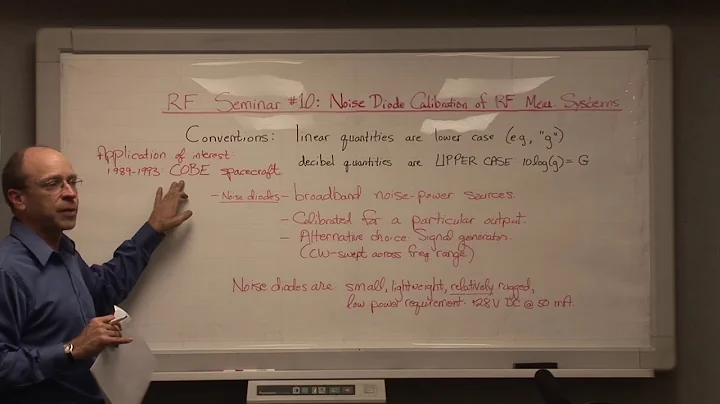 RF Seminar #10: Noise Diode Calibration of RF Meas. Systems
Conventions: linear quantities are lower case (e.g, "g")
decibel quantities are UPPER CASE 10log(g) = G
Application of interest:
1989-1993: COBE spacecraft
- Noise diodes - broadband noise-power sources.
- Calibrated for a particular output.
- Alternative choice: Signal generator.
(CW-swept across freq range)
Noise diodes are small, lightweight, relatively rugged,
low power requirement. +28V DC @ 50 mA.